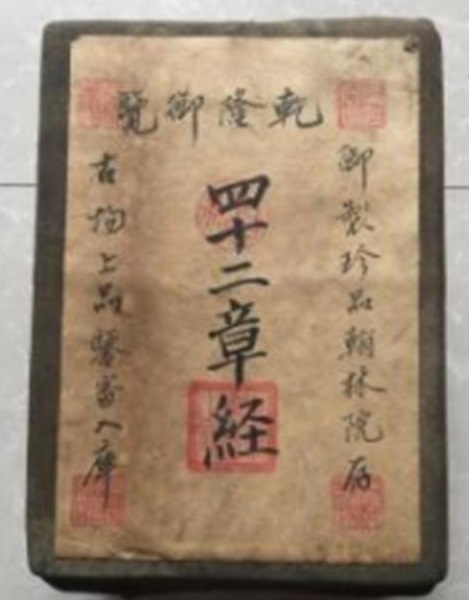 乾隆御覽
御製珍品翰林院存
四十二章経
古物上品鑒審入庫